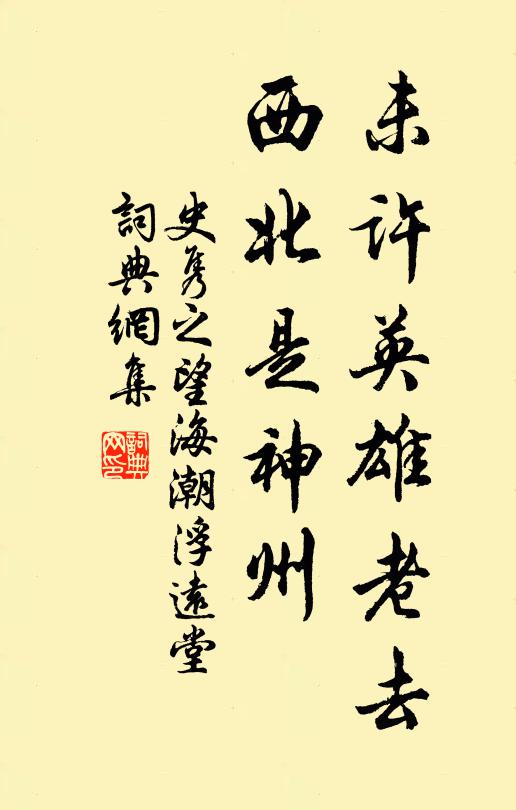 未许英雄老去
西北是神州
史隽之望海潮浮遠堂
詞典網集
詞典网印